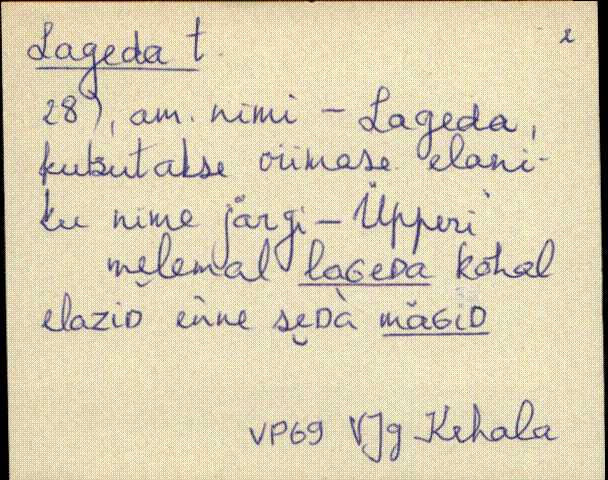 Lageda t. 2
28), am. nimi – Lageda,
kutsutakse viimase elani-
ku nime järgi – Üpperi
melemal lageDa kohal
elaziD enne seDà mäGiD
VP69 VJg Kehala